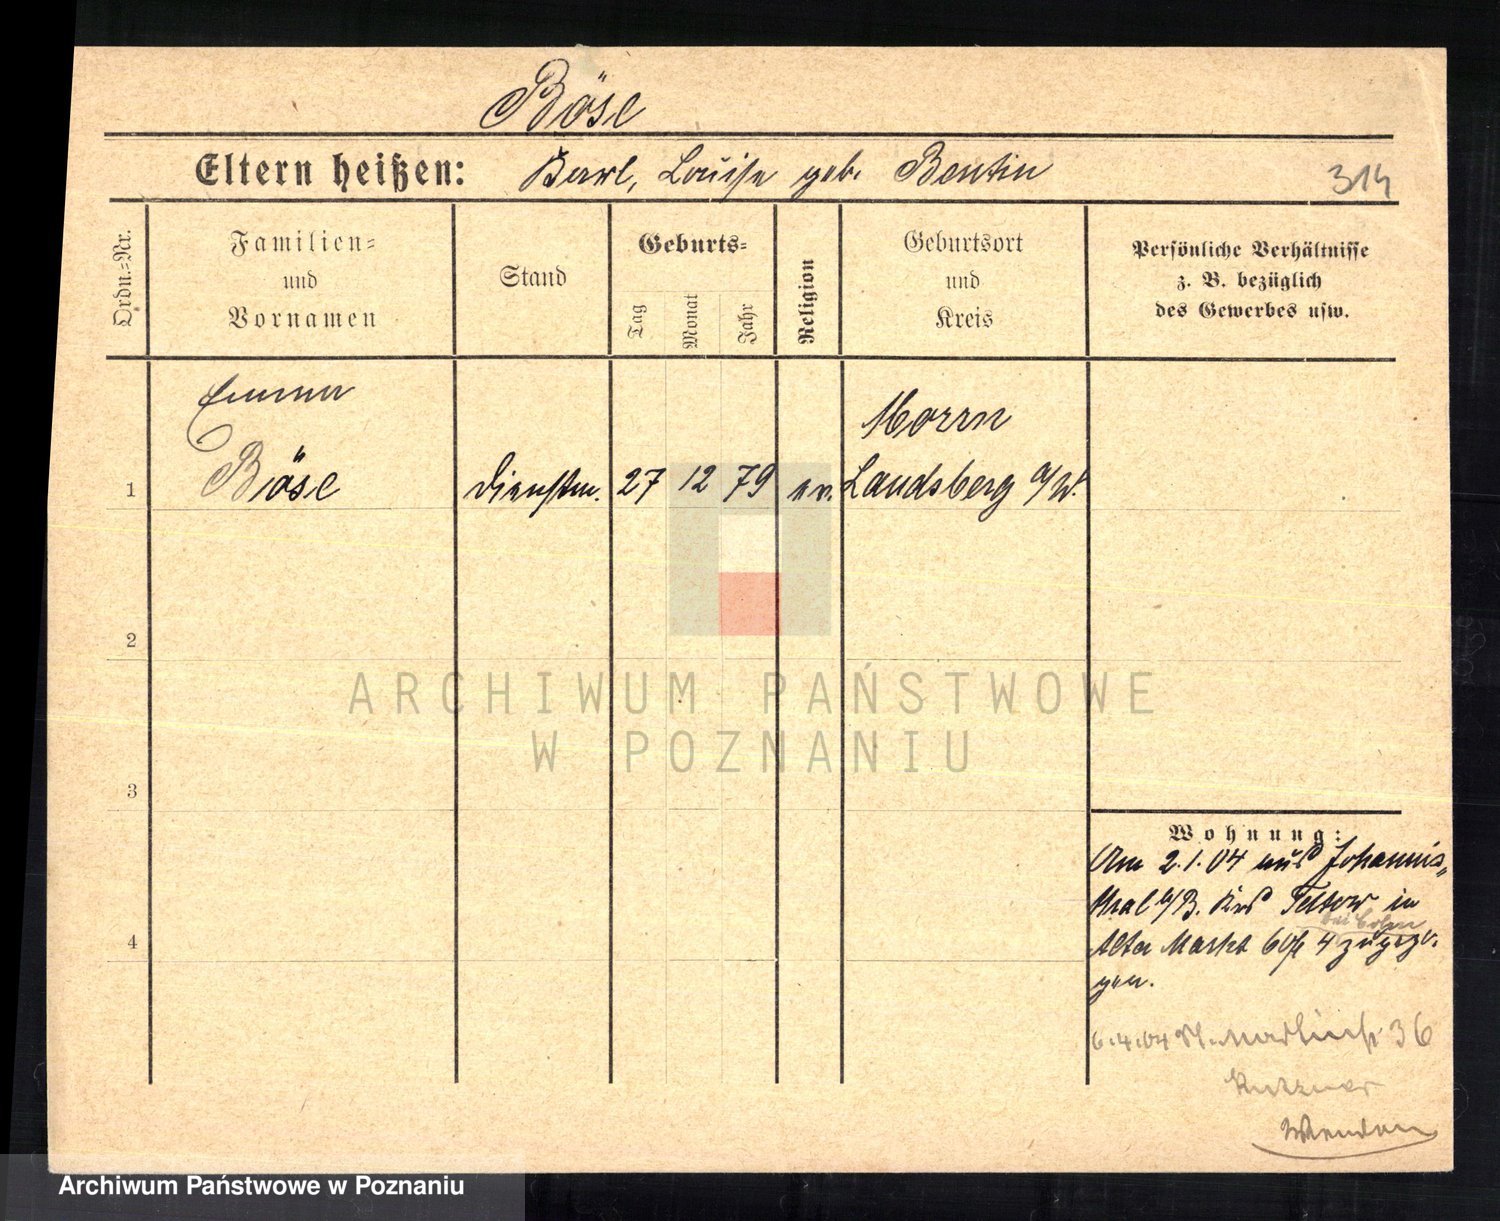 Böse
Eltern heißen: Karl, Louise geb. Bentin
314
Ordn.-Nr.
Familien-
und
Vornamen
Stand
Geburts-
Tag
Monat
Jahr
Religion
Geburtsort
und
Kreis
Persönliche Verhältnisse
z. B. bezüglich
des Gewerbes usw.
Emma
Morrn
1 Böse Dienstm. 27 12 79 ev. Landsberg a/W.
2
3
4
ARCHIWUM PAŃSTWOWE
W POZNANIU
Wohnung:
Am 2.1.04 aus Johannis-
thal b/B. Krs Teltow in
bei Cohn
Alter Markt 4 zugezo-
gen.
6.4.04 St. Martinstr 36
Archiwum Państwowe w Poznaniu